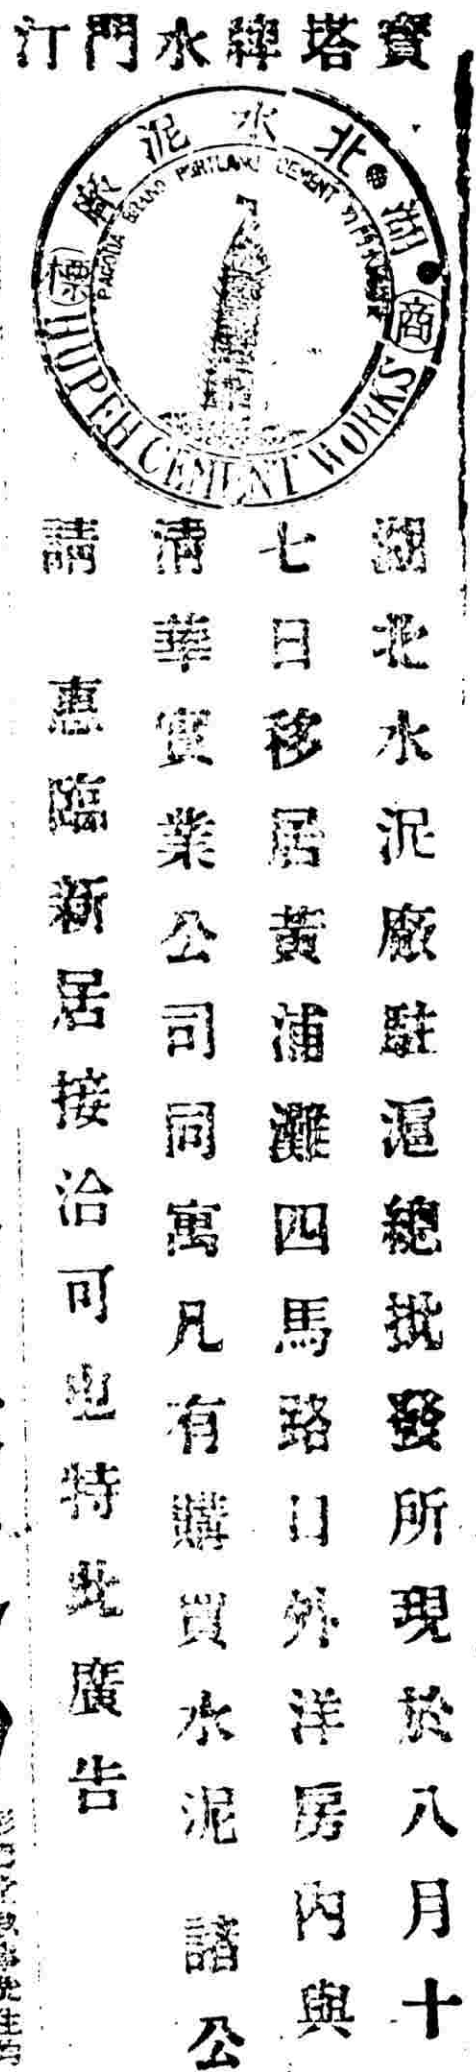 寶塔牌水門汀
湖北水泥廠
商標
PAGODA BRAND PORTLAND CEMENT
HUPEH CEMENT WORKS
湖北水泥廠駐滬總批發所現於八月十
七日移居黃浦灘四馬路口外洋房內與
清華實業公司同寓凡有購買水泥 諸公
請 惠臨新居接洽可也特此廣告